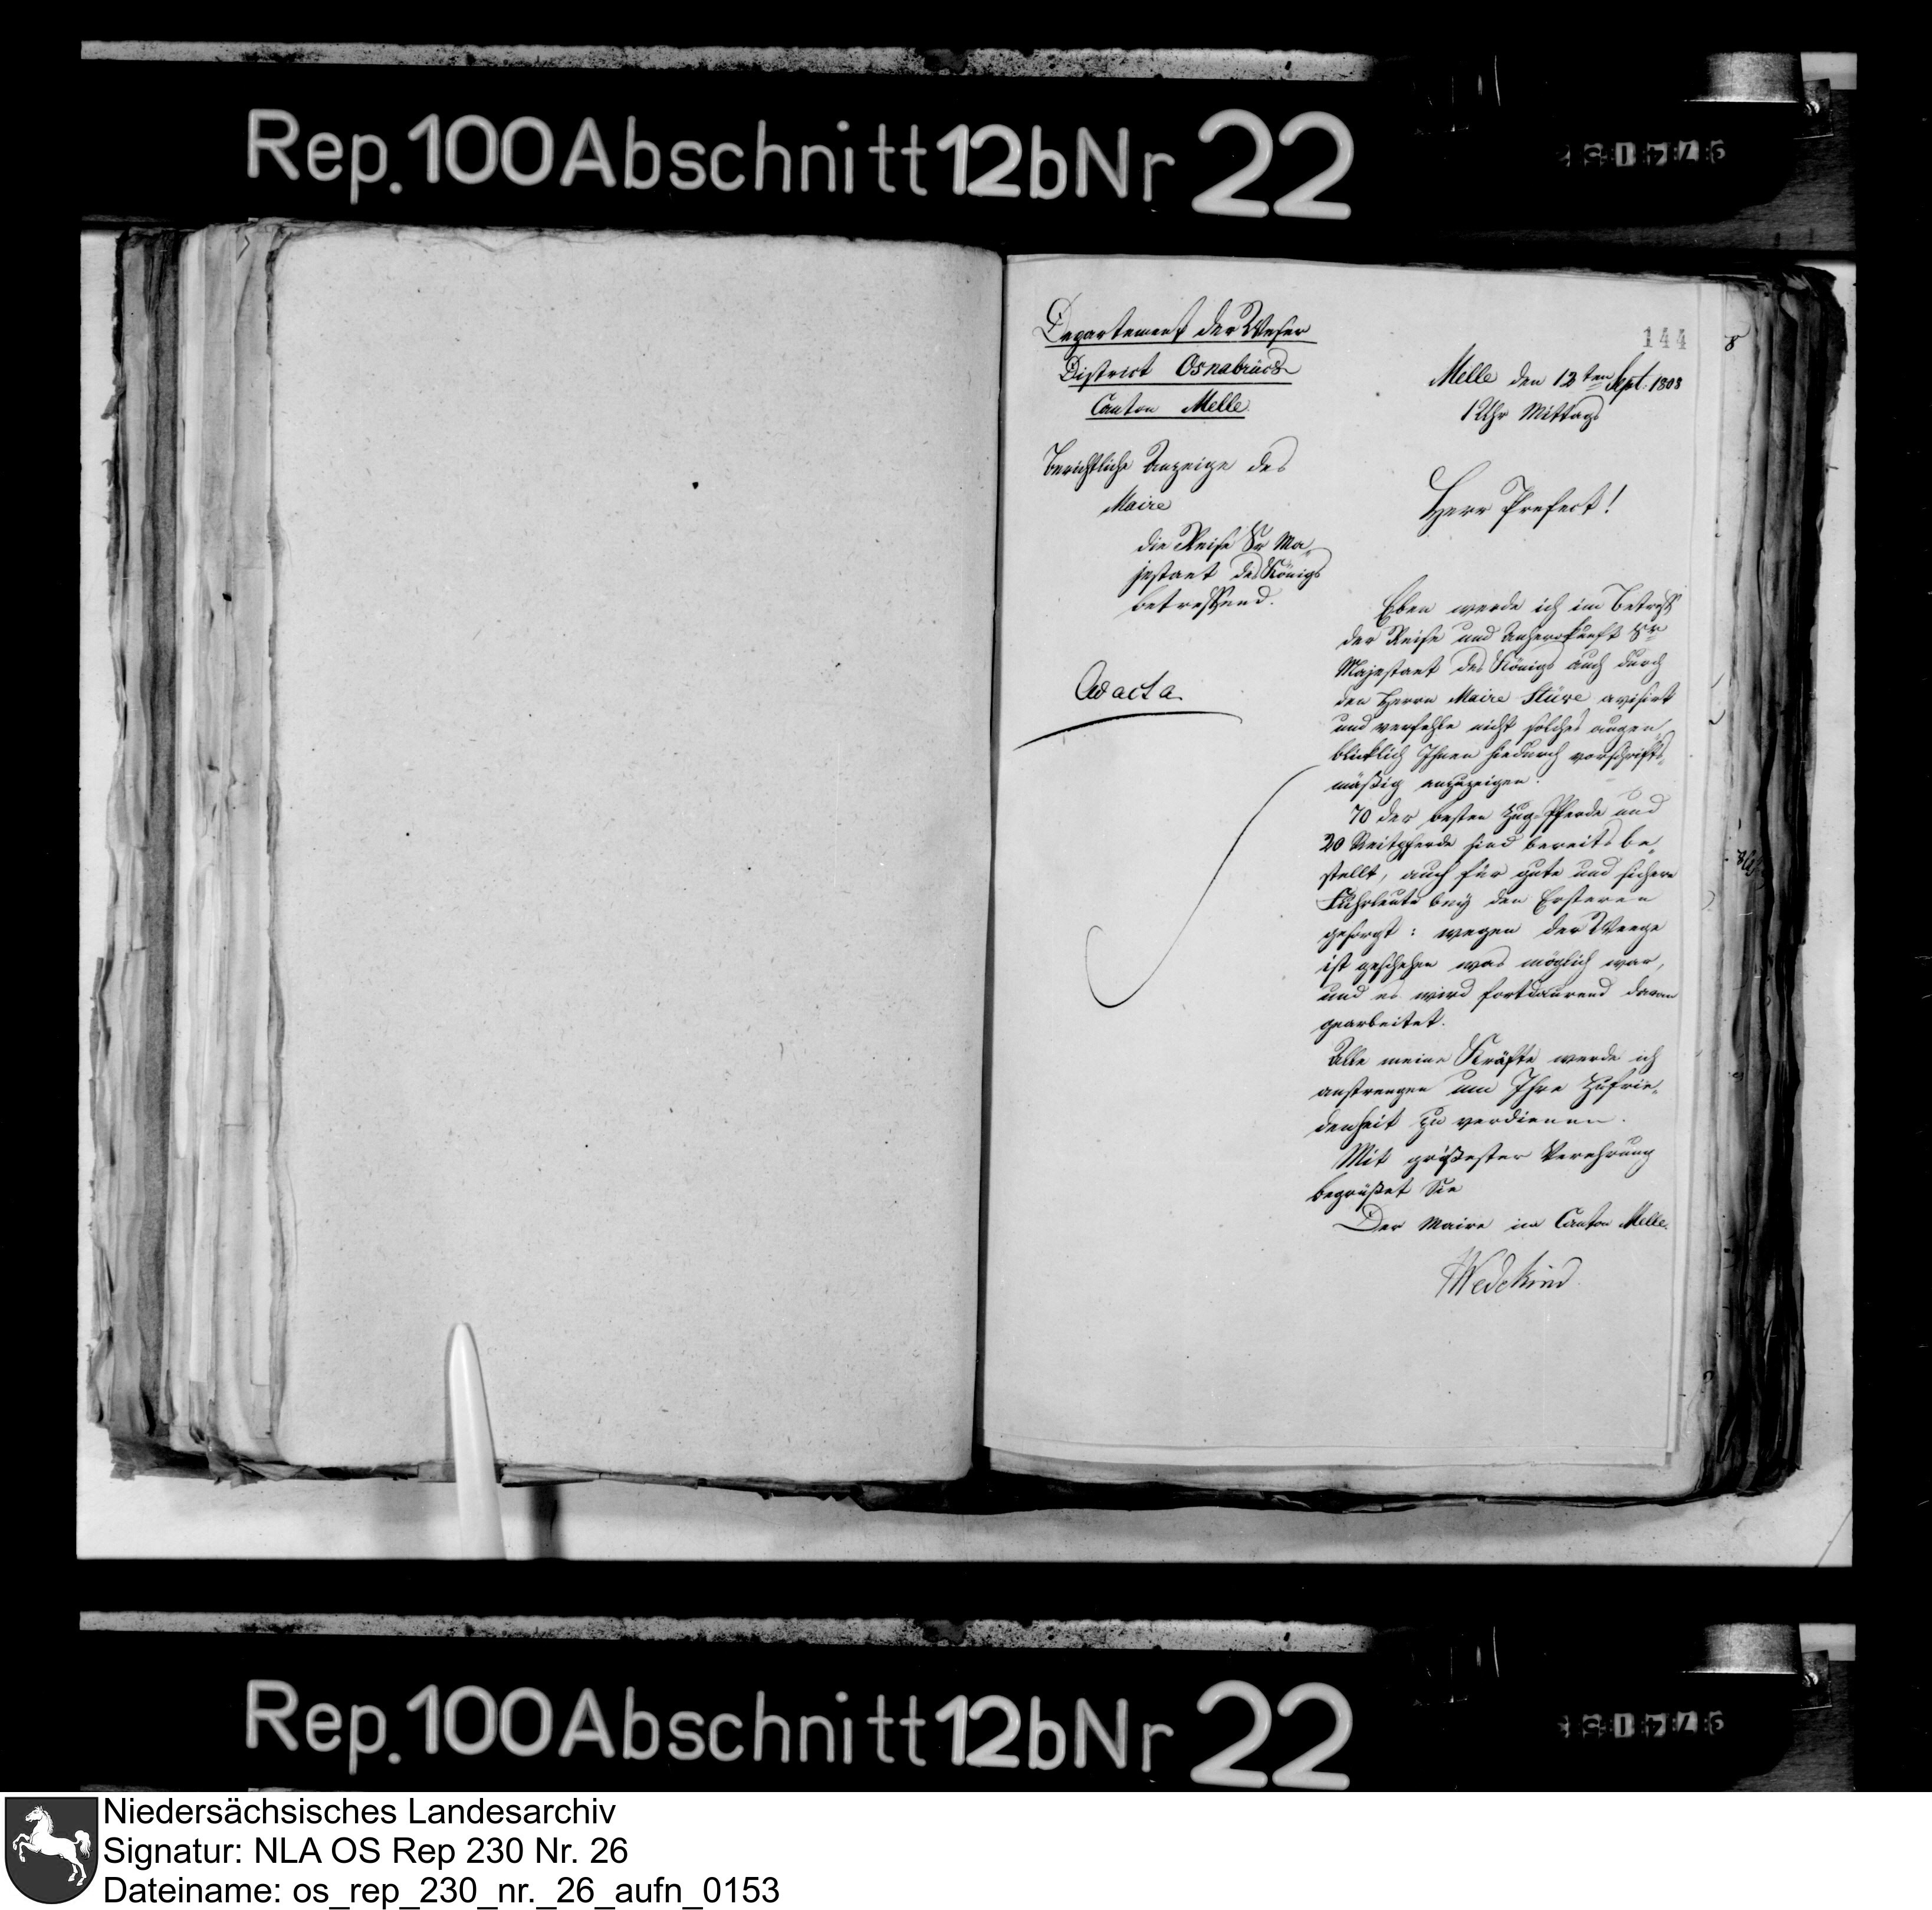 Rep. 100 Abschnitt 12b Nr 22
144
Departement der Weser
District Osnabrück
Canton Melle
Melle den 12ten Sept. 1808
1 Uhr Mittags
Berichtliche Anzeige des
Maire
die Reise Sr Ma„
jestaet des Königs
betreffend.
Ad acta
Herr Prefect!
Eben werde ich im Betreff
der Reise und Anherokunft Sr
Majestaet des Königs auch durch
den Herrn Maire Stüve avisirt
und verfehle nicht solches augen„
blicklich Ihnen hiedurch vorschrifts„
mäßig anzuzeigen.
70 der besten Zug-Pferde und
20 Reitpferde sind bereits be„
stellt, auch für gute und sichere
Fuhrleute bey den Ersteren
gesorgt: wegen der Weege
ist geschehen was möglich war,
und es wird fortdaurend daran
gearbeitet.
Alle meine Kräfte werde ich
anstrengen um Ihre Zufrie„
denheit zu verdienen.
Mit größester Verehrung
begrüßet Sie
Der Maire im Canton Melle.
Wedekind
Rep. 100 Abschnitt 12b Nr 22
Niedersächsisches Landesarchiv
Signatur: NLA OS Rep 230 Nr. 26
Dateiname: os_rep_230_nr._26_aufn_0153